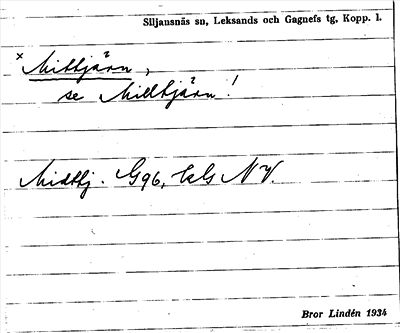 Siljansnäs sn, Leksands och Gagnefs tg, Kopp. l.
x Mittjärn,
se Milltjärn!
Midtj. G96, kls NV.
Bror Lindén 1934